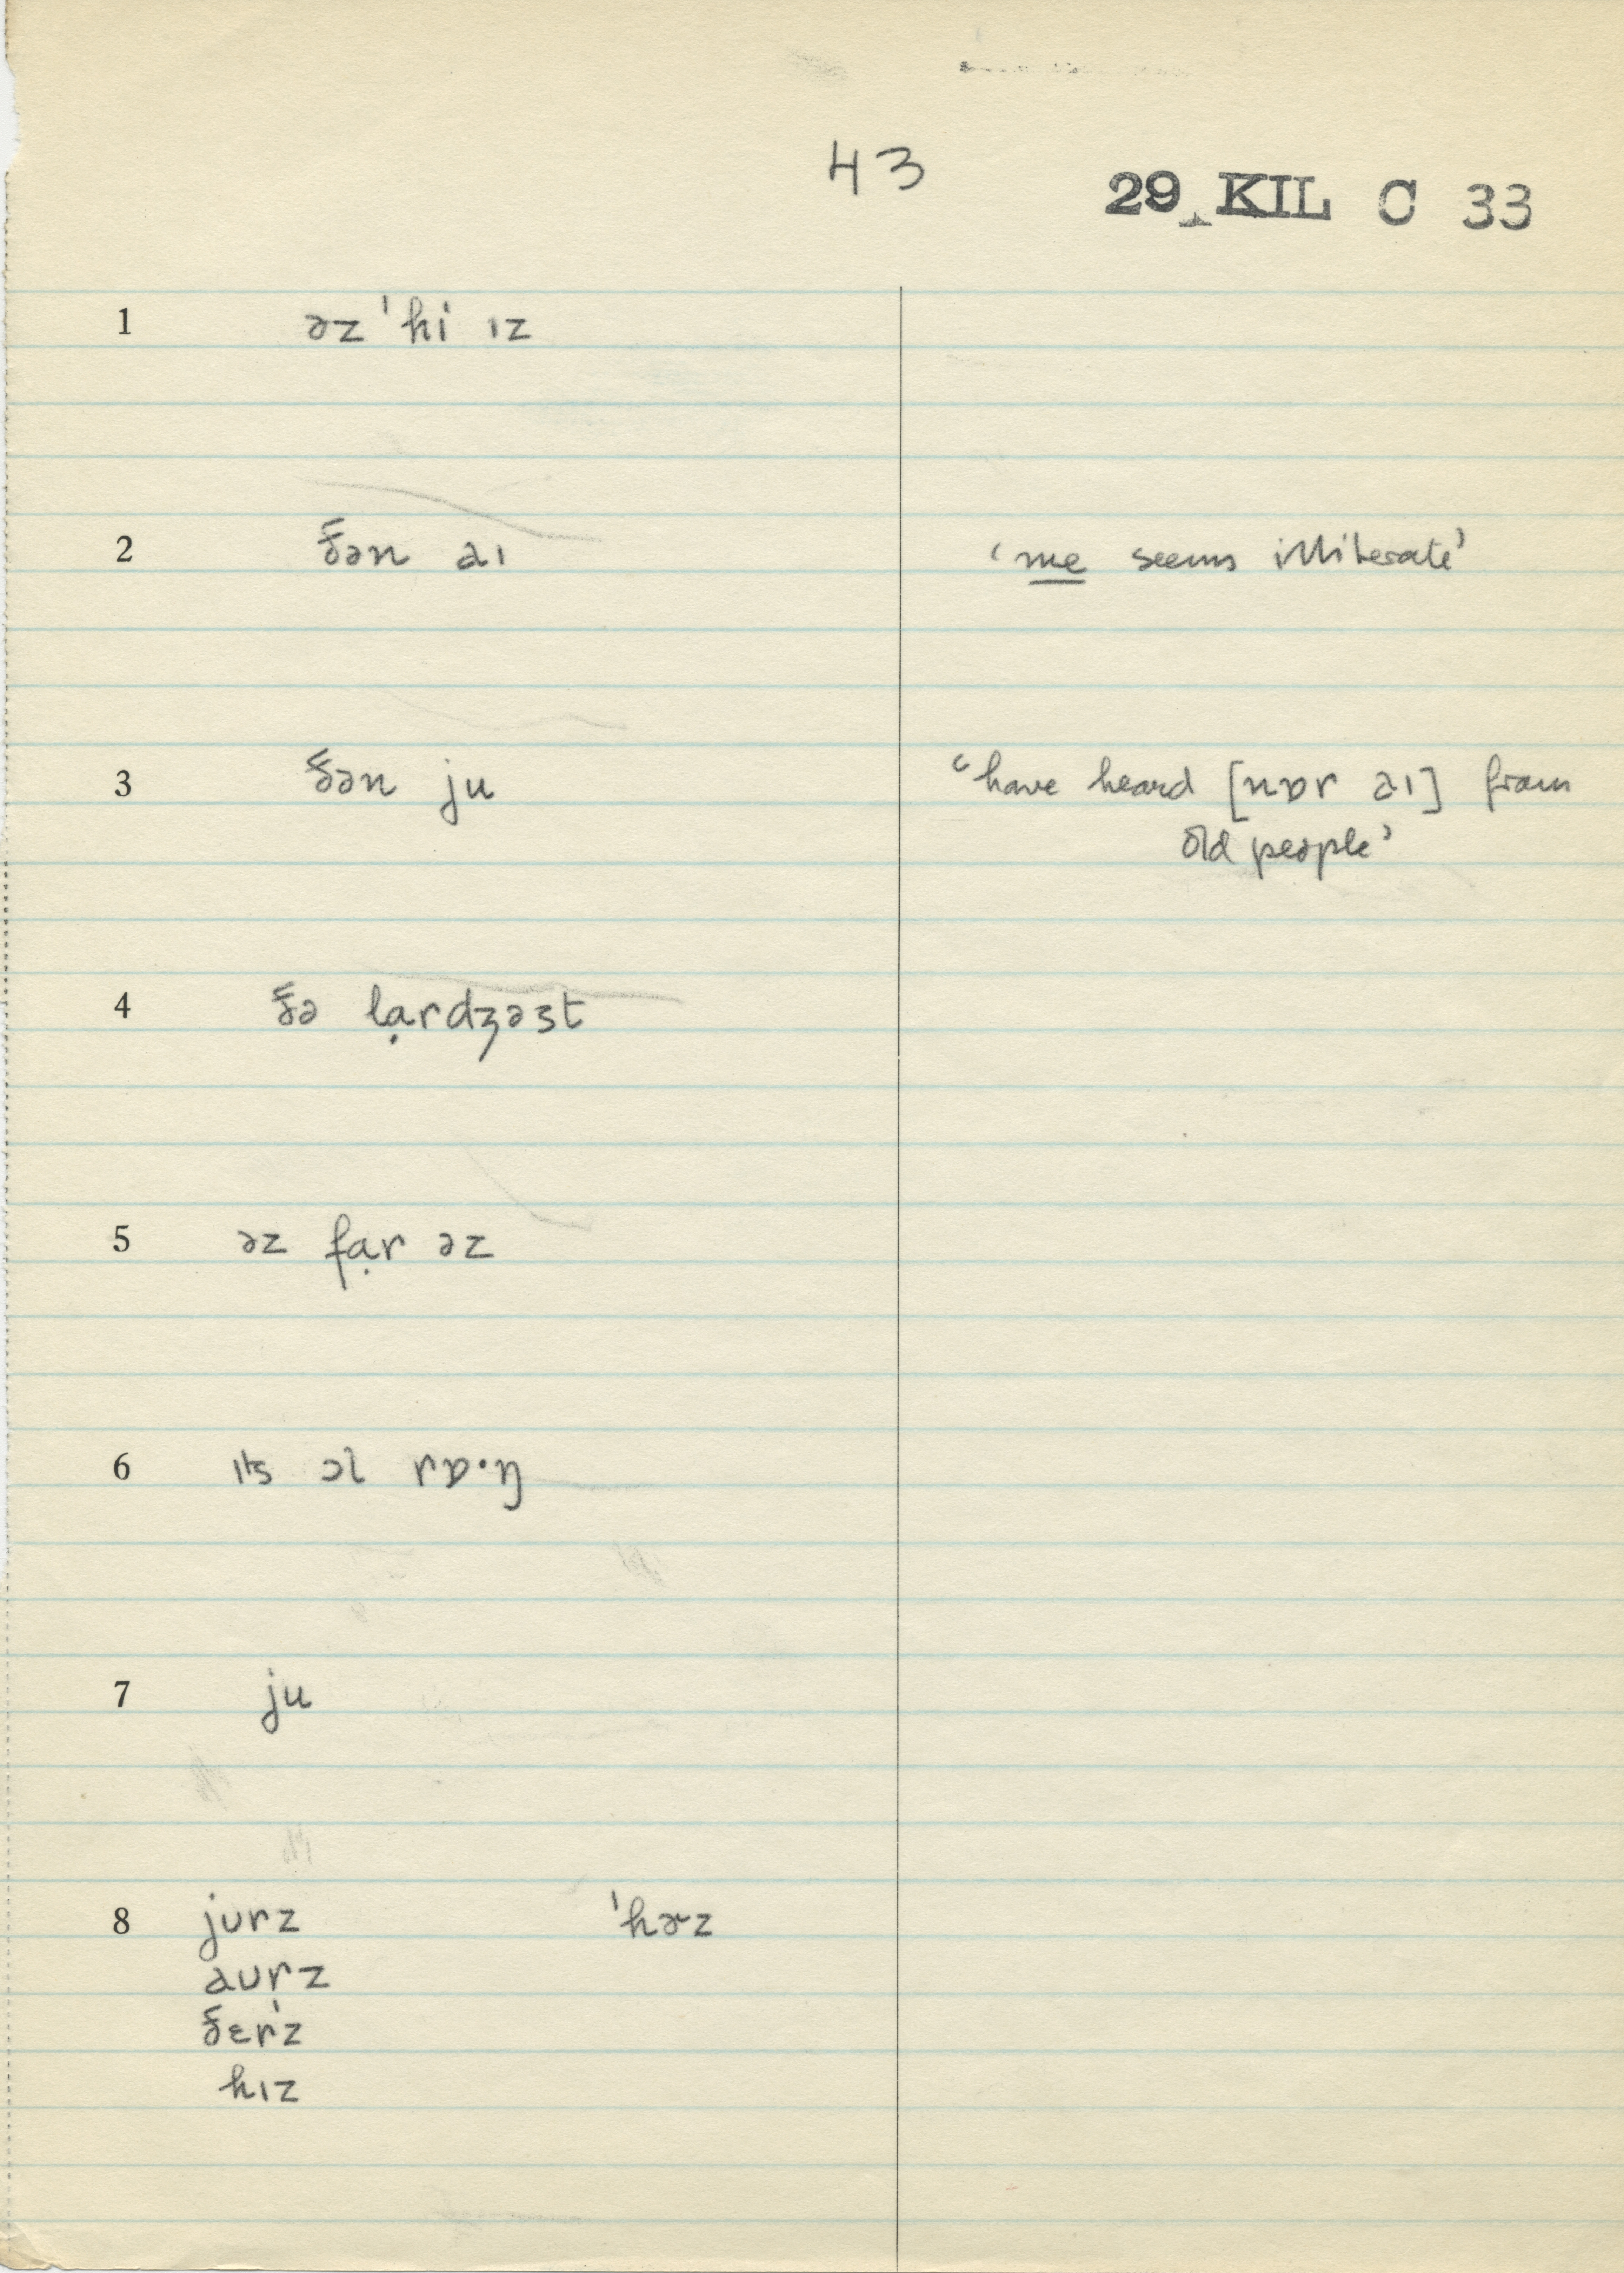 43
29 KIL C 33
1 əz ˈhi ɪz
2 ðən aɪ ‘me seems illiterate’
3 ðən ju ‘have heard [nɒr aɪ] from
old people’
4 ðə lạrdʒəst
5 əz fạr əz
6 ɪts ɔl rɒ·ŋ
7 ju
8 jʊrz ˈhɚz
aʊrz
ðɛrz
hɪz